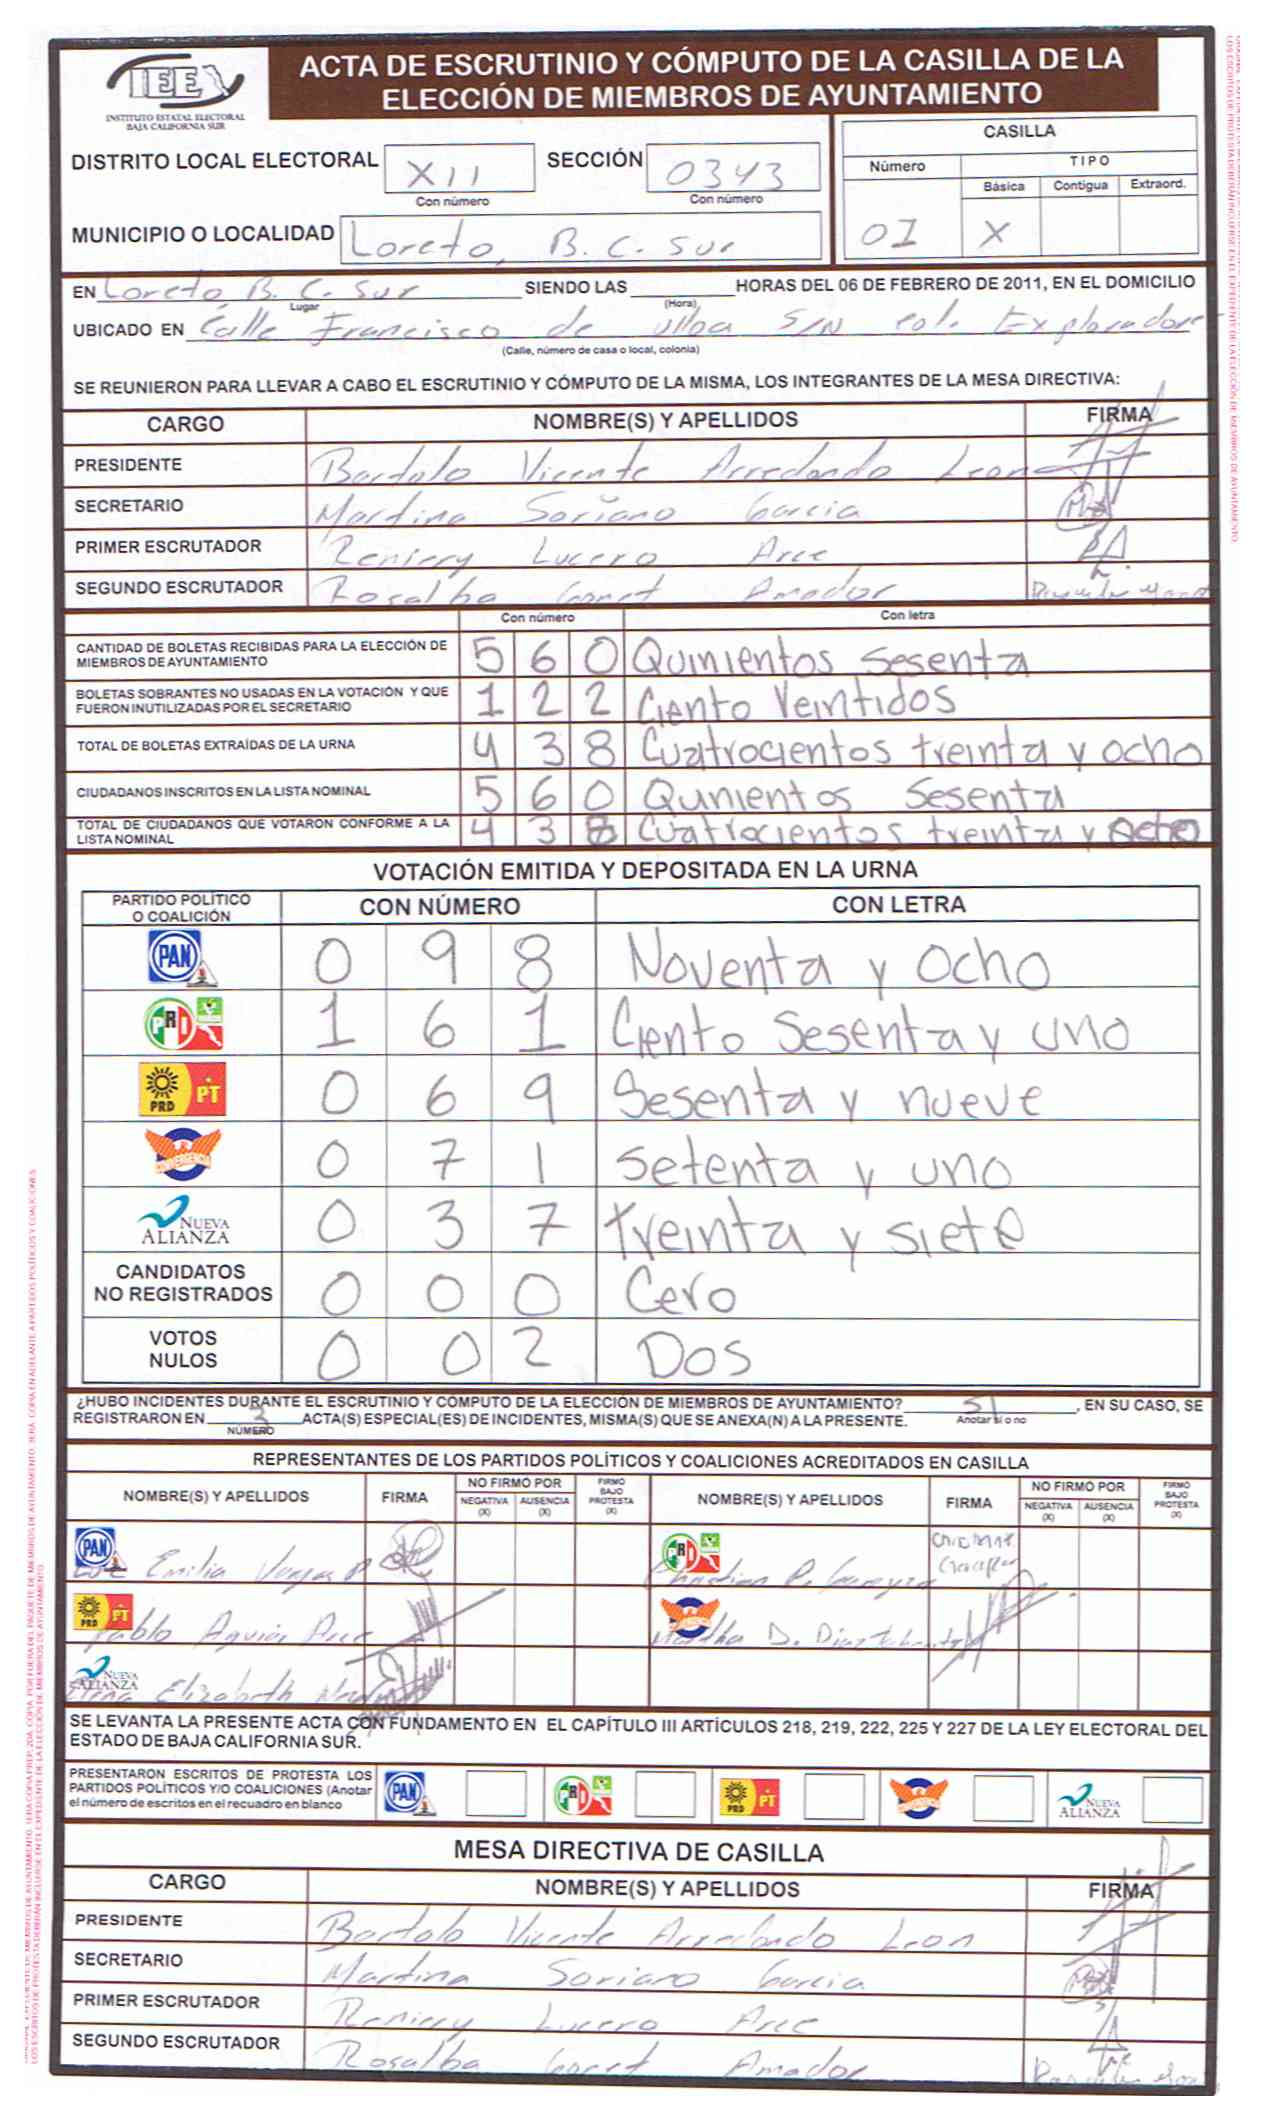 IEE
INSTITUTO ESTATAL ELECTORAL
BAJA CALIFORNIA SUR
ACTA DE ESCRUTINIO Y CÓMPUTO DE LA CASILLA DE LA
ELECCIÓN DE MIEMBROS DE AYUNTAMIENTO
DISTRITO LOCAL ELECTORAL XII SECCIÓN 0343
Con número Con número
MUNICIPIO O LOCALIDAD Loreto, B. C. Sur
CASILLA
Número TIPO
Básica Contigua Extraord.
01 X
EN Loreto B. C. Sur SIENDO LAS HORAS DEL 06 DE FEBRERO DE 2011, EN EL DOMICILIO
Lugar (Hora)
UBICADO EN Calle Francisco de Ulloa S/N col. Exploradores
(Calle, número de casa o local, colonia)
SE REUNIERON PARA LLEVAR A CABO EL ESCRUTINIO Y CÓMPUTO DE LA MISMA, LOS INTEGRANTES DE LA MESA DIRECTIVA:
CARGO NOMBRE(S) Y APELLIDOS FIRMA
PRESIDENTE Bartolo Vicente Arredondo Leon
SECRETARIO Martina Soriano Garcia
PRIMER ESCRUTADOR Reniery Lucero Arce
SEGUNDO ESCRUTADOR Rosalba Amador
Con número Con letra
CANTIDAD DE BOLETAS RECIBIDAS PARA LA ELECCIÓN DE
MIEMBROS DE AYUNTAMIENTO 5 6 0 Quinientos Sesenta
BOLETAS SOBRANTES NO USADAS EN LA VOTACIÓN Y QUE
FUERON INUTILIZADAS POR EL SECRETARIO 1 2 2 Ciento Veintidos
TOTAL DE BOLETAS EXTRAÍDAS DE LA URNA 4 3 8 Cuatrocientos treinta y ocho
CIUDADANOS INSCRITOS EN LA LISTA NOMINAL 5 6 0 Qunientos Sesenta
TOTAL DE CIUDADANOS QUE VOTARON CONFORME A LA
LISTA NOMINAL 4 3 8 Cuatrocientos treinta y ocho
VOTACIÓN EMITIDA Y DEPOSITADA EN LA URNA
PARTIDO POLÍTICO
O COALICIÓN CON NÚMERO CON LETRA
PAN 0 9 8 Noventa y Ocho
PRI 1 6 1 Ciento Sesenta y uno
PRD PT 0 6 9 Sesenta y nueve
CONVERGENCIA 0 7 1 Setenta y uno
NUEVA ALIANZA 0 3 7 treinta y siete
CANDIDATOS
NO REGISTRADOS 0 0 0 Cero
VOTOS
NULOS 0 0 2 Dos
¿HUBO INCIDENTES DURANTE EL ESCRUTINIO Y CÓMPUTO DE LA ELECCIÓN DE MIEMBROS DE AYUNTAMIENTO? SI , EN SU CASO, SE
REGISTRARON EN 3 ACTA(S) ESPECIAL(ES) DE INCIDENTES, MISMA(S) QUE SE ANEXA(N) A LA PRESENTE. Anotar si o no
NÚMERO
REPRESENTANTES DE LOS PARTIDOS POLÍTICOS Y COALICIONES ACREDITADOS EN CASILLA
NOMBRE(S) Y APELLIDOS FIRMA NO FIRMÓ POR NEGATIVA (X) AUSENCIA (X) FIRMÓ BAJO PROTESTA (X) NOMBRE(S) Y APELLIDOS FIRMA NO FIRMÓ POR NEGATIVA (X) AUSENCIA (X) FIRMÓ BAJO PROTESTA (X)
PAN Luz Emilia Vargas PRI Christian
PRD PT Pablo Aguiar Arce CONVERGENCIA Martha D. Diaz
NUEVA ALIANZA Elena Elizabeth
SE LEVANTA LA PRESENTE ACTA CON FUNDAMENTO EN EL CAPÍTULO III ARTÍCULOS 218, 219, 222, 225 Y 227 DE LA LEY ELECTORAL DEL
ESTADO DE BAJA CALIFORNIA SUR.
PRESENTARON ESCRITOS DE PROTESTA LOS
PARTIDOS POLÍTICOS Y/O COALICIONES (Anotar
el número de escritos en el recuadro en blanco
PAN PRI PRD PT CONVERGENCIA NUEVA ALIANZA
MESA DIRECTIVA DE CASILLA
CARGO NOMBRE(S) Y APELLIDOS FIRMA
PRESIDENTE Bartolo Vicente Arredondo Leon
SECRETARIO Martina Soriano Garcia
PRIMER ESCRUTADOR Reniery Lucero Arce
SEGUNDO ESCRUTADOR Rosalba Amador